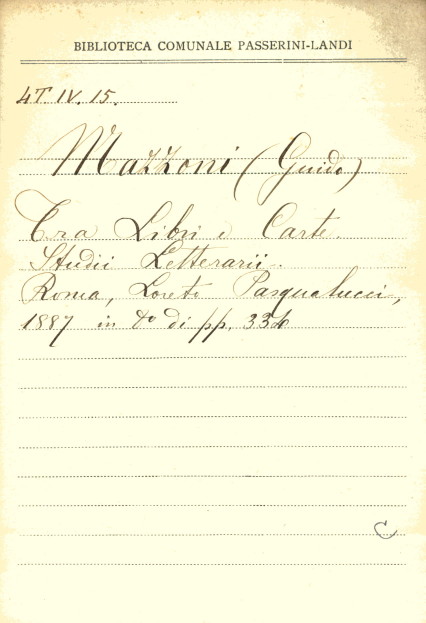 BIBLIOTECA COMUNALE PASSERINI-LANDI
4T. IV. 15.
Mazzoni (Guido)
Tra Libri e Carte.
Studii Letterarii.
Roma, Loreto Pasqualucci,
1887 in 8o di pp. 334
C